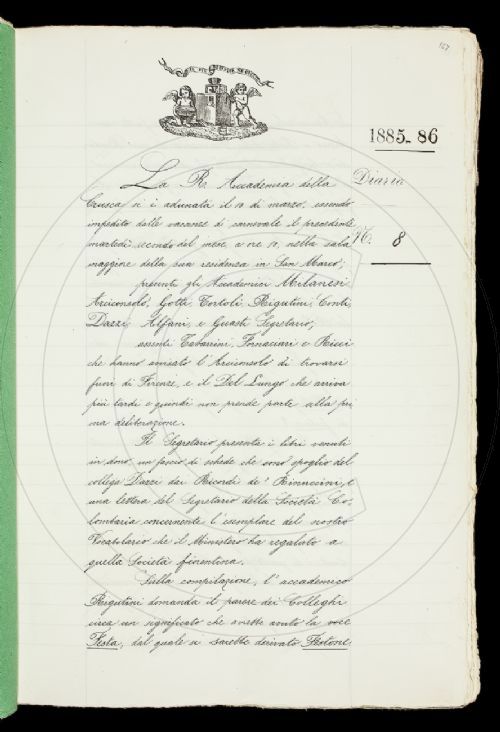 167
1885-86
Diario
N. 8
La R. Accademia della
Crusca si è adunata il 10 di marzo, essendo
impedito dalle vacanze di carnevale il precedente
martedì secondo del mese, a ore 10, nella sala
maggiore della sua residenza in San Marco;
presenti gli Accademici Milanesi
Arciconsolo, Gotti, Tortoli, Rigutini, Conti,
Dazzi, Alfani, e Guasti Segretario;
assenti Tabarrini, Fornaciari e Ricci
che hanno avvisato l'Arciconsolo di trovarsi
fuori di Firenze, e il Del Lungo che arriva
più tardi e quindi non prende parte alla pri
ma deliberazione.
Il Segretario presenta i libri venuti
in dono, un fascio di schede che sono spoglio del
collega Dazzi dai Ricordi de' Rinuccini, e
una lettera del Segretario della Società Co-
lombaria concernente l'esemplare del nostro
Vocabolario che il Ministero ha regalato a
quella Società fiorentina.
Sulla compilazione, l'accademico
Rigutini domanda il parere dei Colleghi
circa un significato che avrebbe avuto la voce
Festa, dal quale si sarebbe derivato Festone